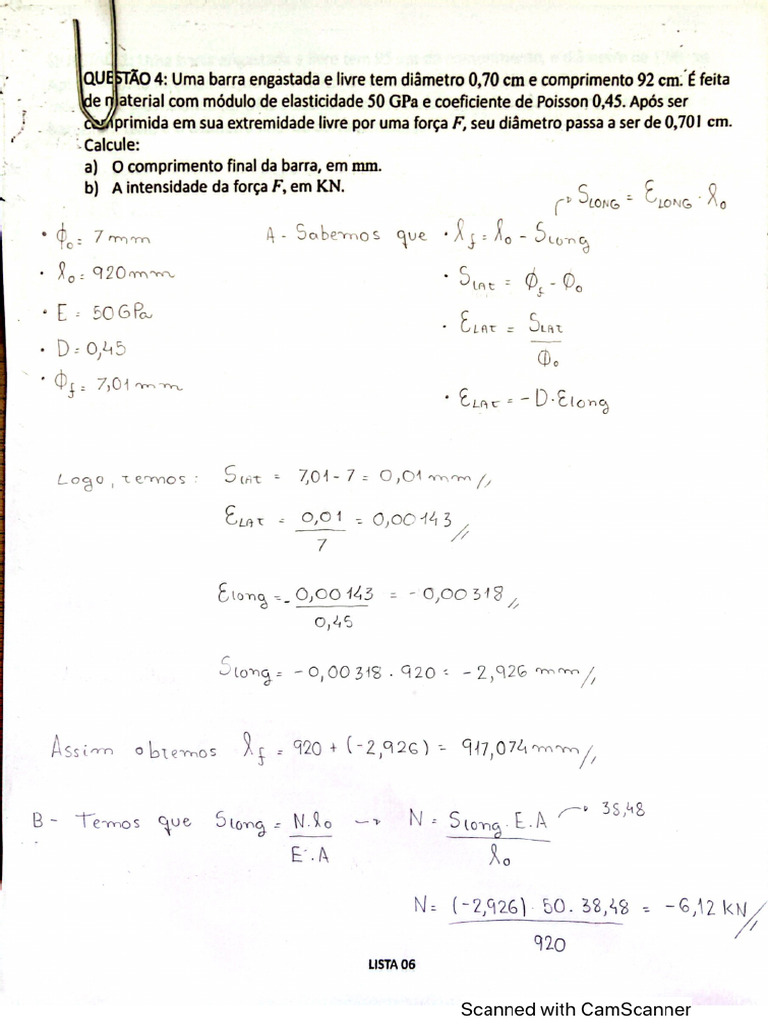 QUESTÃO 4: Uma barra engastada e livre tem diâmetro 0,70 cm e comprimento 92 cm. É feita
de material com módulo de elasticidade 50 GPa e coeficiente de Poisson 0,45. Após ser
comprimida em sua extremidade livre por uma força F, seu diâmetro passa a ser de 0,701 cm.
Calcule:
a) O comprimento final da barra, em mm.
b) A intensidade da força F, em KN.
→ SLONG = ELONG · lo
• ϕo = 7 mm
A - Sabemos que • lf = lo - Slong
• lo = 920 mm
• SLAT = ϕf - ϕo
• E = 50 GPa
• ELAT = SLAT / ϕo
• D = 0,45
• ϕf = 7,01 mm
• ELAT = - D · Elong
Logo, temos: SLAT = 7,01 - 7 = 0,01 mm //
ELAT = 0,01 / 7 = 0,00143 //
Elong = - 0,00143 / 0,45 = - 0,00318 //
Slong = - 0,00318 . 920 = - 2,926 mm //
Assim obtemos lf = 920 + (-2,926) = 917,074 mm //
B - Temos que Slong = N. lo / E . A → N = Slong . E . A / lo → 38,48
N = (-2,926) . 50 . 38,48 / 920 = - 6,12 kN //
LISTA 06
Scanned with CamScanner